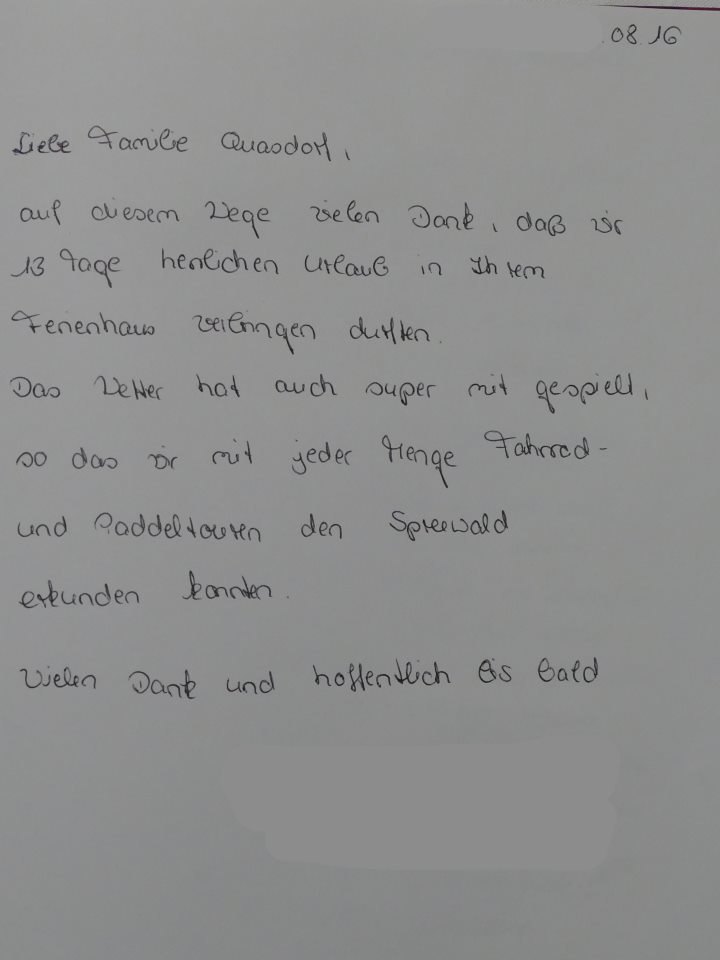 .08.16
Liebe Familie Quasdorf,
auf diesem Wege vielen Dank, daß wir
13 Tage herrlichen Urlaub in Ihrem
Ferienhaus verbringen durften.
Das Wetter hat auch super mit gespielt,
so das wir mit jeder Menge Fahrrad-
und Paddeltouren den Spreewald
erkunden konnten.
Vielen Dank und hoffentlich bis bald